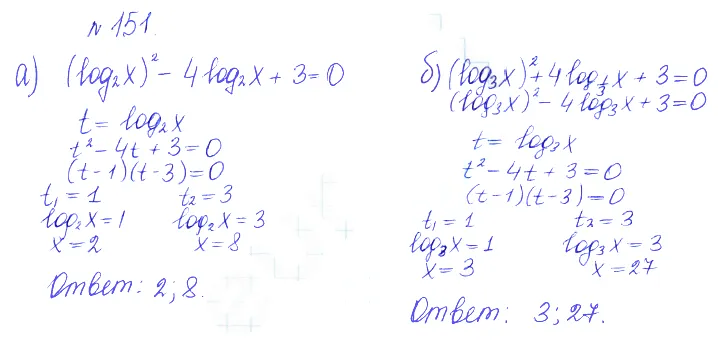 № 151.
а) (log₂x)² - 4 log₂x + 3 = 0
t = log₂x
t² - 4t + 3 = 0
(t - 1)(t - 3) = 0
t₁ = 1 t₂ = 3
log₂x = 1 log₂x = 3
x = 2 x = 8
Ответ: 2; 8.
б) (log₃x)² + 4 log_{1/3}x + 3 = 0
(log₃x)² - 4 log₃x + 3 = 0
t = log₃x
t² - 4t + 3 = 0
(t - 1)(t - 3) = 0
t₁ = 1 t₂ = 3
log₃x = 1 log₃x = 3
x = 3 x = 27
Ответ: 3; 27.